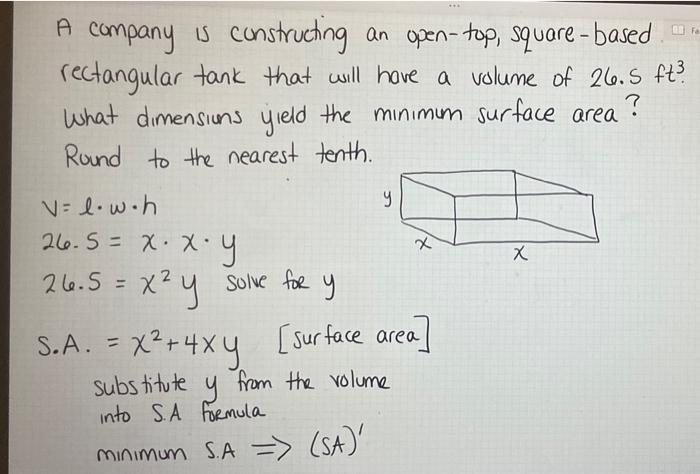 A company is constructing an open-top, square-based
rectangular tank that will have a volume of 26.5 ft³.
What dimensions yield the minimum surface area?
Round to the nearest tenth.
V = l·w·h
26.5 = x·x·y
26.5 = x² y solve for y
y
x
x
S.A. = x² + 4xy [surface area]
substitute y from the volume
into S.A formula
minimum S.A => (SA)'